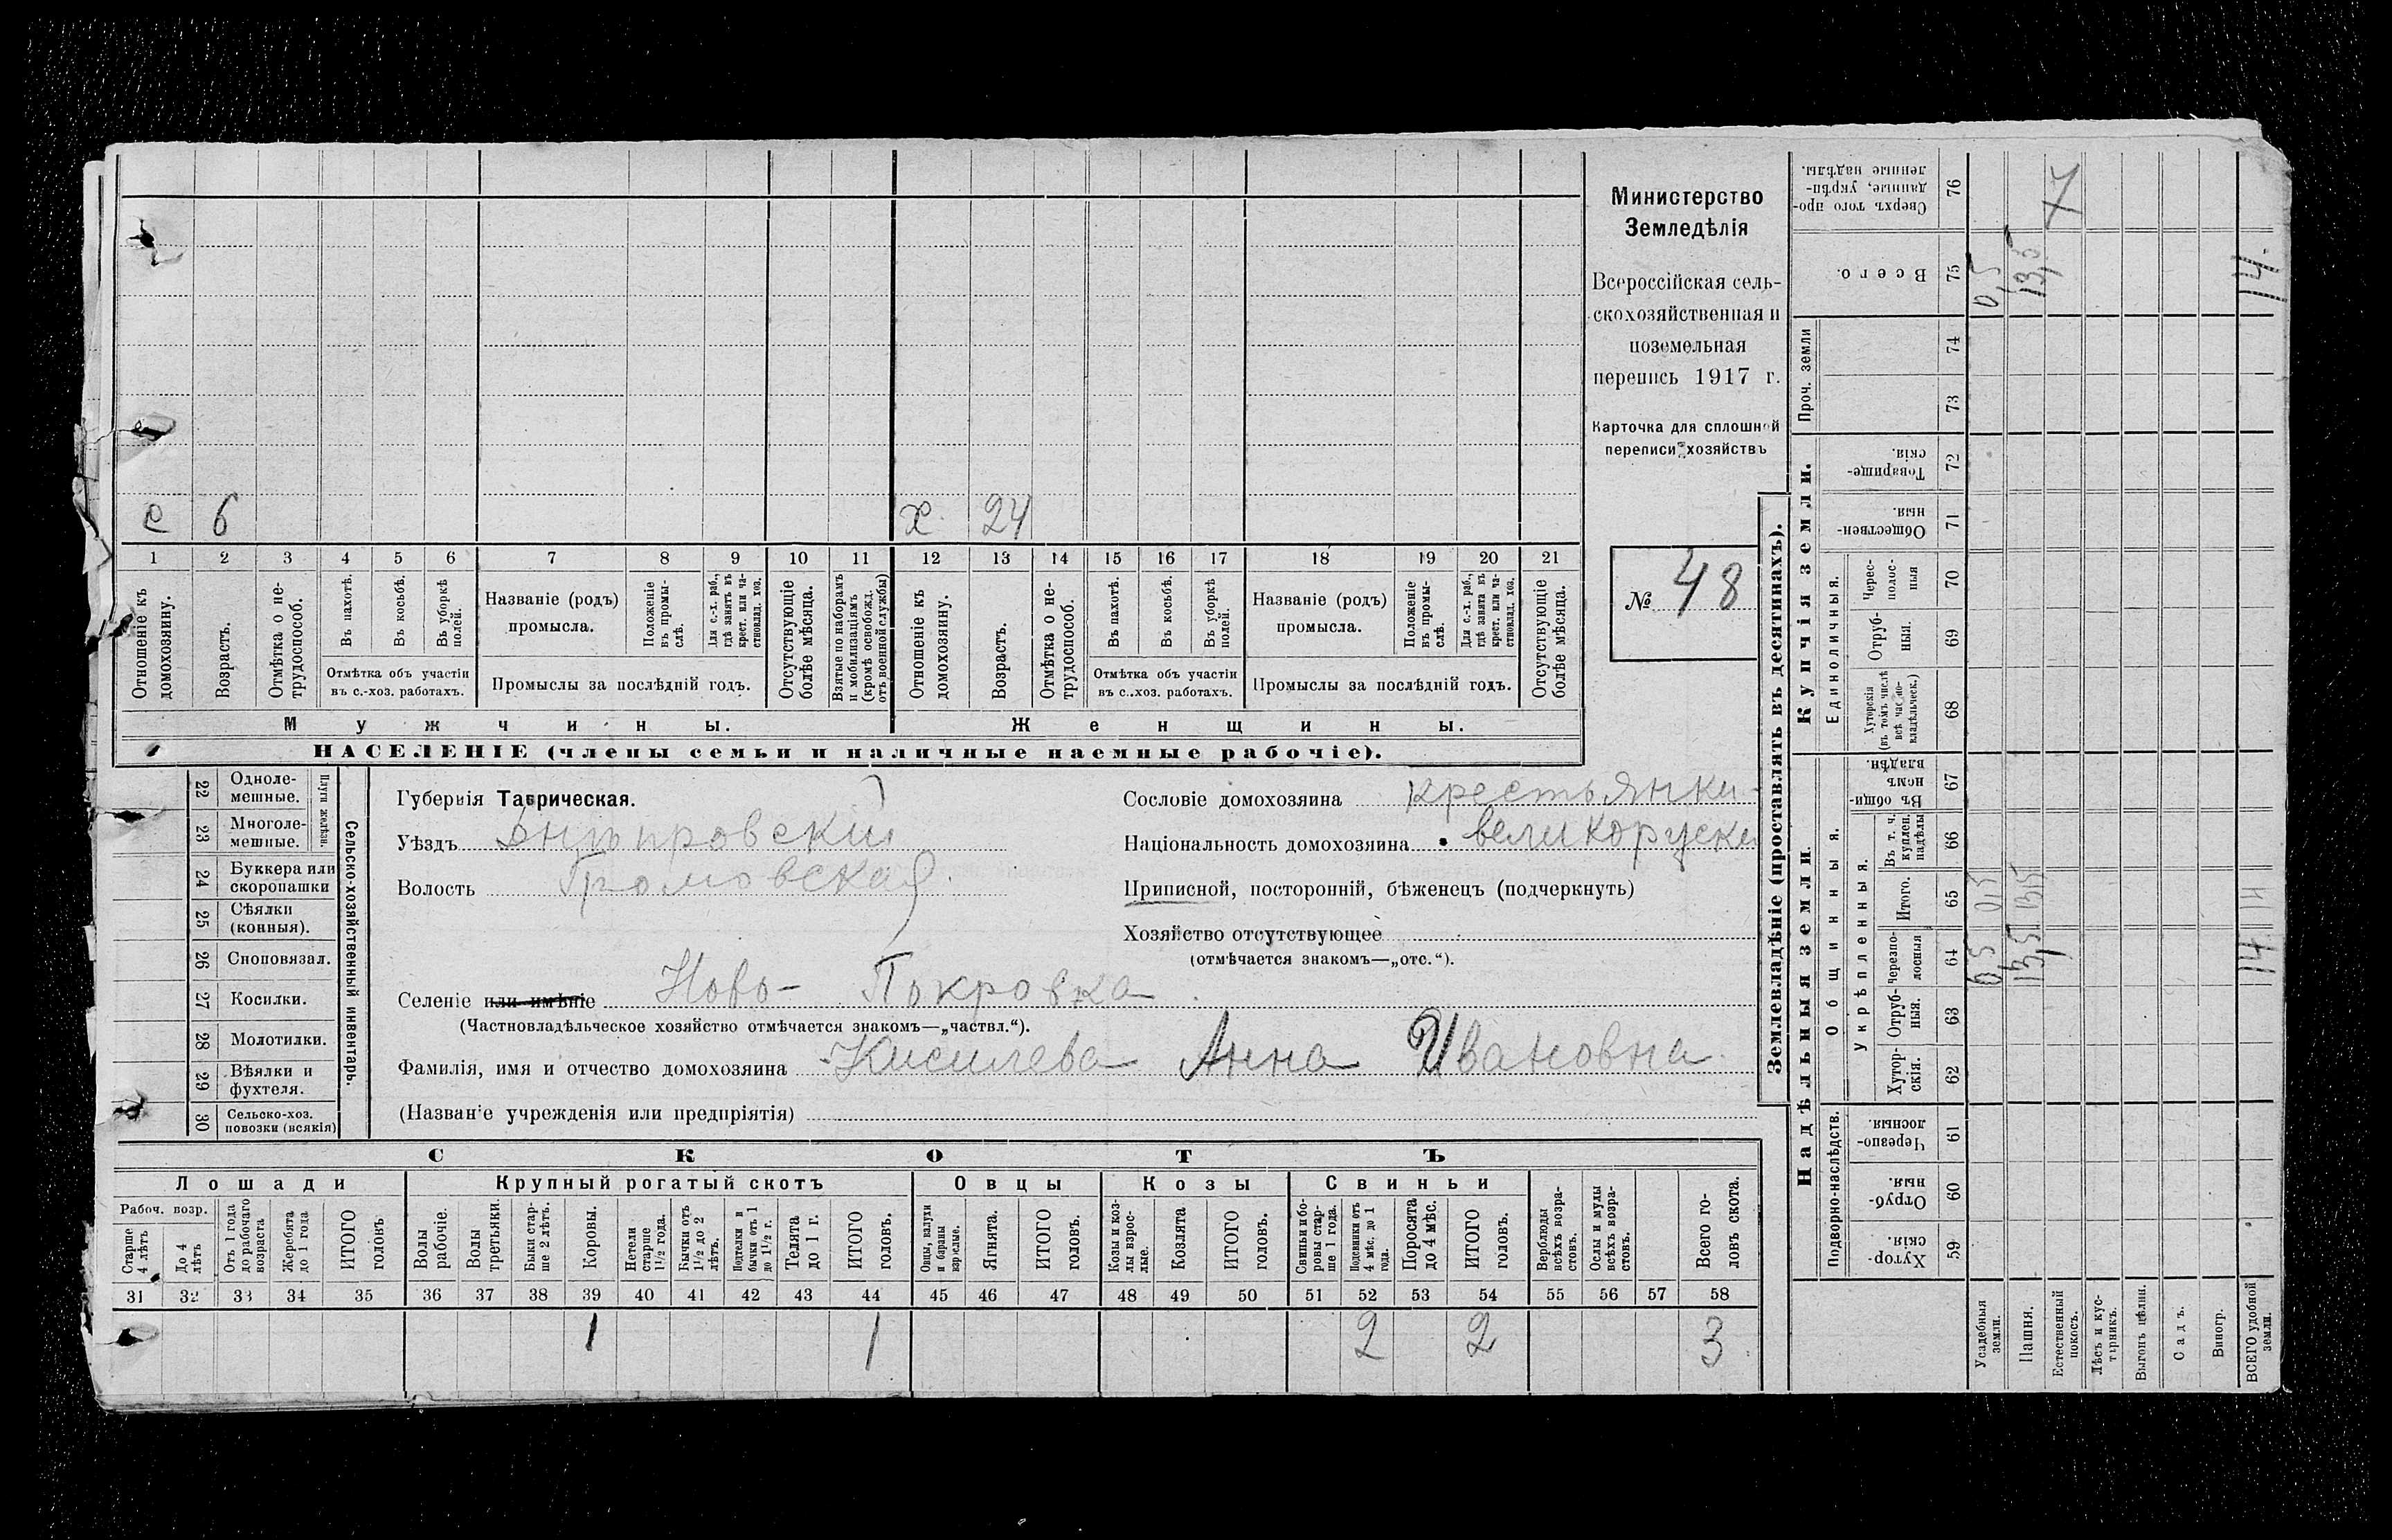 е 6 х. 24
1 2 3 4 5 6 7 8 9 10 11 12 13 14 15 16 17 18 19 20 21
Отношеніе къ домохозяину.
Возрастъ.
Отмѣтка о не-трудоспособ.
Въ пахотѣ.
Въ косьбѣ.
Въ уборкѣ полей.
Отмѣтка объ участіи
въ с.-хоз. работахъ.
Названіе (родъ)
промысла.
Положеніе въ промы-слѣ.
Для с.-х. раб., гдѣ занятъ въ крест. или ча-стновлад. хоз.
Промыслы за послѣдній годъ.
Отсутствующіе болѣе мѣсяца.
Взятые по наборамъ и мобилизаціямъ (кромѣ освобожд. отъ военной службы)
Отношеніе къ домохозяину.
Возрастъ.
Отмѣтка о не-трудоспособ.
Въ пахотѣ.
Въ косьбѣ.
Въ уборкѣ полей.
Отмѣтка объ участіи
въ с..хоз. работахъ.
Названіе (родъ)
промысла.
Положеніе въ промы-слѣ.
Для с.-х. раб., гдѣ занята въ крест. или ча-стновлад. хоз.
Промыслы за послѣдній годъ.
Отсутствующіе болѣе мѣсяца.
Мужчины. Женщины.
НАСЕЛЕНІЕ (члены семьи и наличные наемные рабочіе).
Министерство
Земледѣлія
Всероссійская сель-
скохозяйственная и
поземельная
перепись 1917 г.
Карточка для сплошной
переписи хозяйствъ
№ 48
22 Одноле-мешные.
23 Многоле-мешные.
Плуги желѣзн.
24 Буккера или скоропашки
25 Сѣялки (конныя).
26 Сноповязал.
27 Косилки.
28 Молотилки.
29 Вѣялки и фухтеля.
30 Сельско-хоз. повозки (всякія)
Сельско-хозяйственный инвентарь.
Губернія Таврическая.
Уѣздъ Днѣпровскій
Волость Громовская
Селеніе или имѣніе Ново- Покровка
(Частновладѣльческое хозяйство отмѣчается знакомъ—„частвл.“).
Фамилія, имя и отчество домохозяина Киселева Анна Ивановна.
(Названіе учрежденія или предпріятія)
Сословіе домохозяина крестьянки
Національность домохозяина великоруски
Приписной, посторонній, бѣженецъ (подчеркнуть)
Хозяйство отсутствующее
(отмѣчается знакомъ—„отс.“).
СКОТЪ
Лошади Крупный рогатый скотъ Овцы Козы Свиньи
Рабоч. возр.
Старше 4 лѣтъ
До 4 лѣтъ
Отъ 1 года до рабочаго возраста
Жеребята до 1 года
ИТОГО головъ
Волы рабочіе.
Волы третьяки.
Быки стар-ше 2 лѣтъ.
Коровы.
Нетели старше 1½ года.
Бычки отъ 1½ до 2 лѣтъ.
Подтелки и бычки отъ 1 до 1½ г.
Телята до 1 г.
ИТОГО головъ.
Овцы, валухи и бараны взрослые.
Ягнята.
ИТОГО головъ.
Козы и коз-лы взрос-лые.
Козлята
ИТОГО головъ.
Свиньи и бо-ровы стар-ше 1 года.
Подсвинки отъ 4 мѣс. до 1 года.
Поросята до 4 мѣс.
ИТОГО головъ.
Верблюды всѣхъ возра-стовъ.
Ослы и мулы всѣхъ возра-стовъ.
Всего го-ловъ скота.
31 32 33 34 35 36 37 38 39 40 41 42 43 44 45 46 47 48 49 50 51 52 53 54 55 56 57 58
1 1 2 2 3
Землевладѣніе (проставлять въ десятинахъ).
Надѣльныя земли.
Купчія земли.
Проч. земли
Подворно-наслѣдств.
Общинныя.
Укрѣпленныя.
Единоличныя.
Хутор-скія. 59
Отруб-ныя. 60
Черезпо-лосныя. 61
Хутор-скія. 62
Отруб-ныя. 63
Черезпо-лосныя 64 0,5 13,5 14
Итого. 65 0,5 13,5 14
Въ т. ч. куплен. надѣлы 66
Въ общин-номъ владѣн. 67
Хуторскія (въ томъ числѣ всѣ частно-владѣльческ.) 68
Отруб-ныя. 69
Черес-полос-ныя 70
Обществен-ныя. 71
Товарище-скія. 72
73
74
Всего. 75 0,5 13,5 14.
Сверхъ того про-данные, укрѣп-ленные надѣлы. 76 7
Усадебныя земли.
Пашня.
Естественный покосъ.
Лѣсъ и кус-тарникъ.
Выгонъ цѣлин.
Садъ.
Виногр.
ВСЕГО удобной земли.